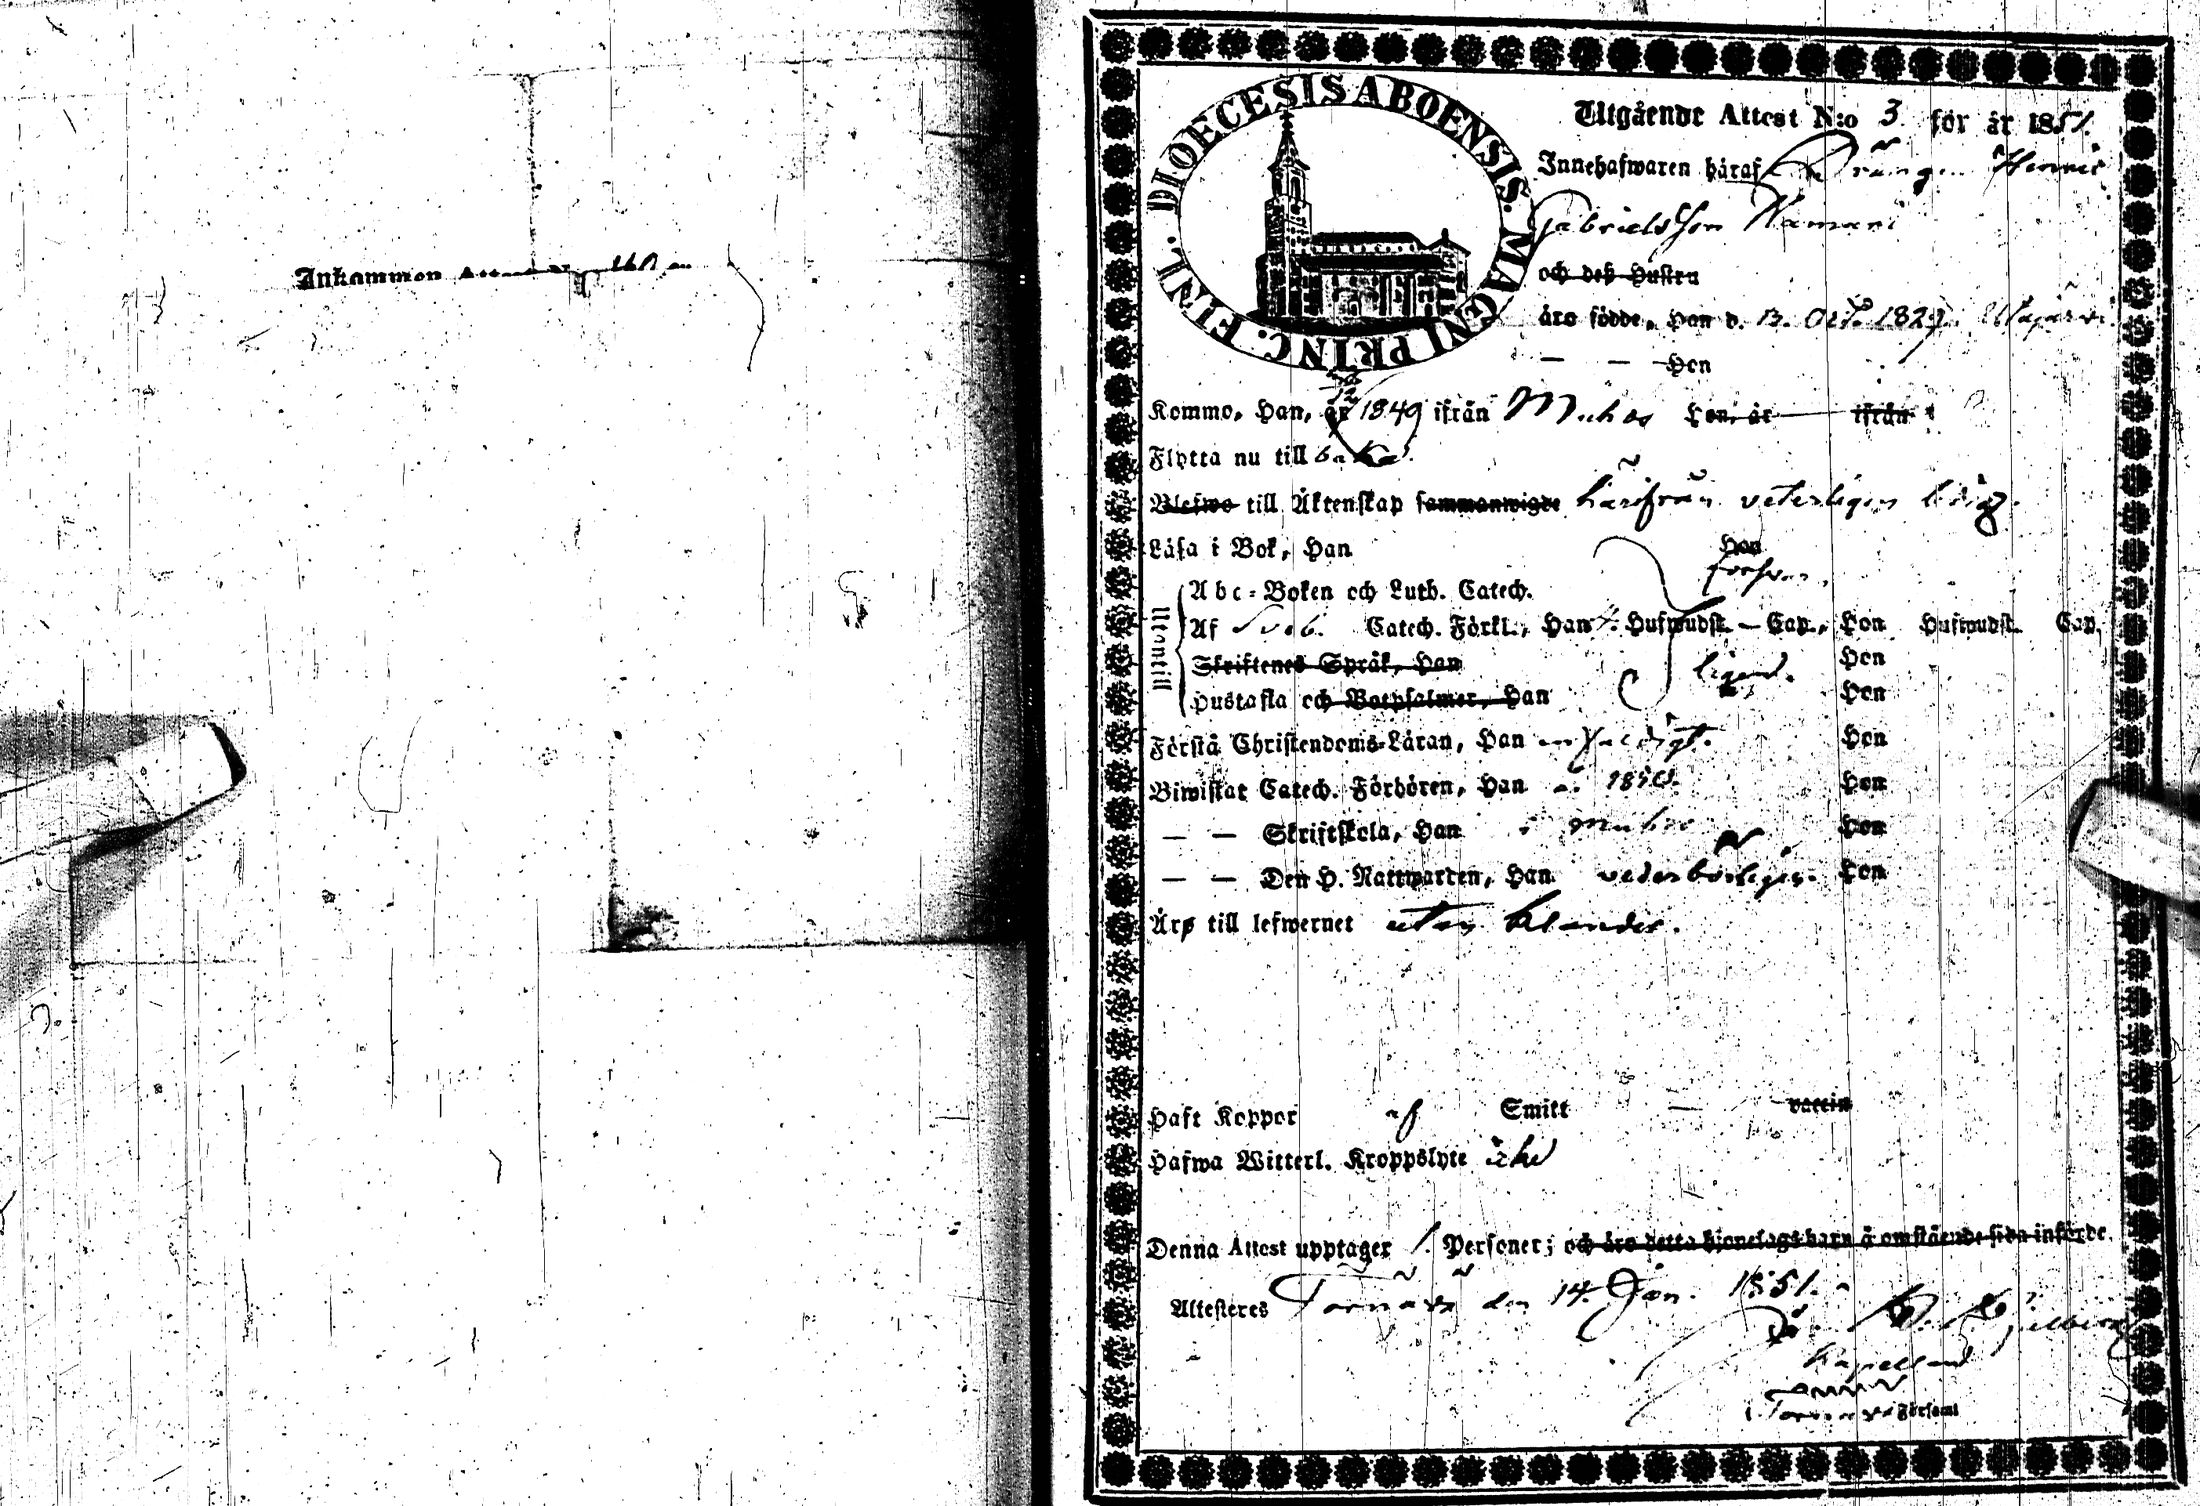 Inkommen
DIOECESIS ABOENSIS. MAGNI PRINC. FINL.
Utgående Attest N:o 3 för år 1851.
Innehafwaren häraf Drängen Henric
Gabrielsson Hamari
och deß Hustru
äro födde, Han d. 13. Oct. 1829. Utajärvi
— — Hon
Kommo, Han, år 1849 ifrån Muhos Hon, år ifrån
Flytta nu till baka.
Blefwo till Äktenskap sammanwigde härifrån veterligen ledig.
Läsa i Bok, Han Hon
försvar
Utantill
Abc-Boken och Luth. Catech.
Af Sveb. Catech. Förkl., Han Hufwudst. — Cap., Hon Hufwudst. Cap.
Skriftenes Språk, Han Hon
ligend.
Hustafla och Botpsalmer, Han Hon
Förstå Christendoms-Läran, Han enfaldigt. Hon
Biwistat Catech. Förhören, Han 1850. Hon
— — Skriftskola, Han i Muhos Hon
— — Den H. Nattwarden, Han vederbörligen. Hon
Äro till lefwernet utan klander.
Haft Koppor af Smitt — vaccin
Hafwa Witterl. Kroppslyte icke
Denna Attest upptager 1. Personer; och äro detta hjonelags barn å omstående sida införde.
Attesteres Tornävä den 14. Jan. 1851.
Kapellan
Församl